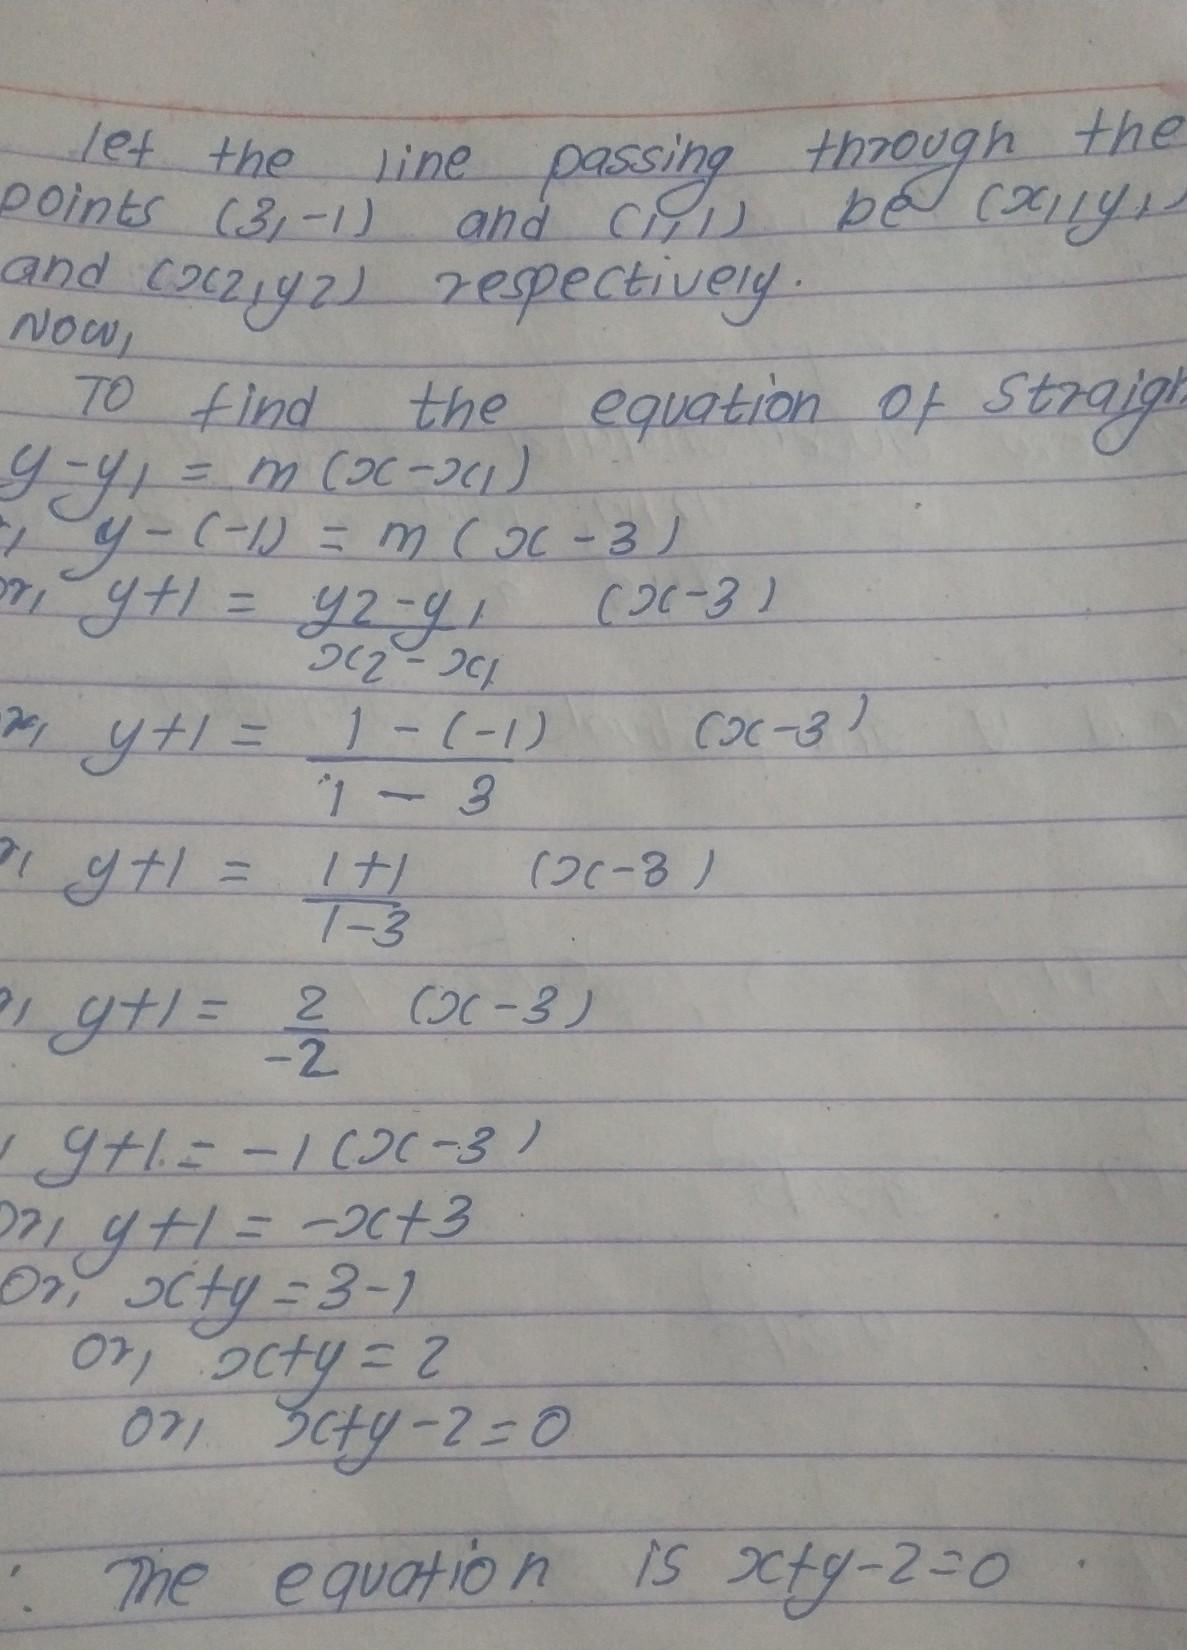 let the line passing through the
points (3,-1) and (1,1) be (x1,y1)
and (x2,y2) respectively.
Now,
To find the equation of straigh
y-y1 = m(x-x1)
y-(-1) = m(x-3)
or, y+1 = y2-y1 (x-3)
x2-x1
or, y+1 = 1-(-1) (x-3)
1-3
r, y+1 = 1+1 (x-3)
1-3
r, y+1 = 2 (x-3)
-2
, y+1 = -1(x-3)
or, y+1 = -x+3
Or, x+y = 3-1
or, x+y = 2
or, x+y-2=0
The equation is x+y-2=0.